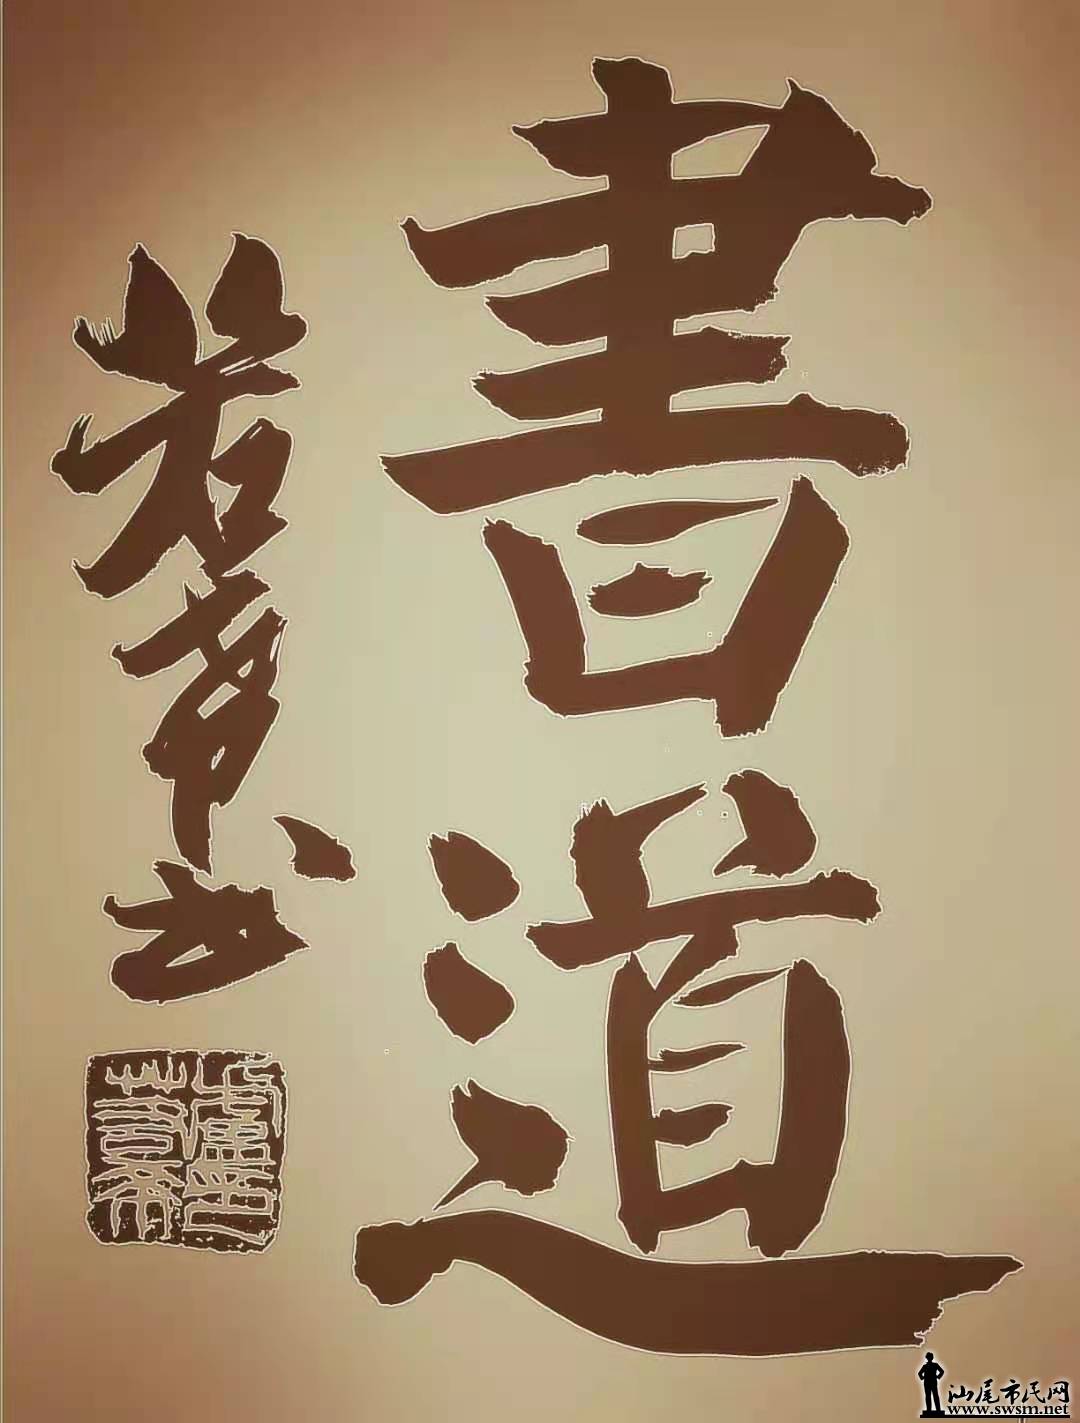 書道
若希书
汕尾市民网
www.swsm.net